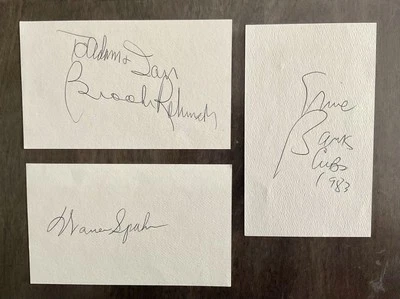 To Adam & Ian
Brooks Robinson
Warren Spahn
Ernie
Banks
Cubs
1983